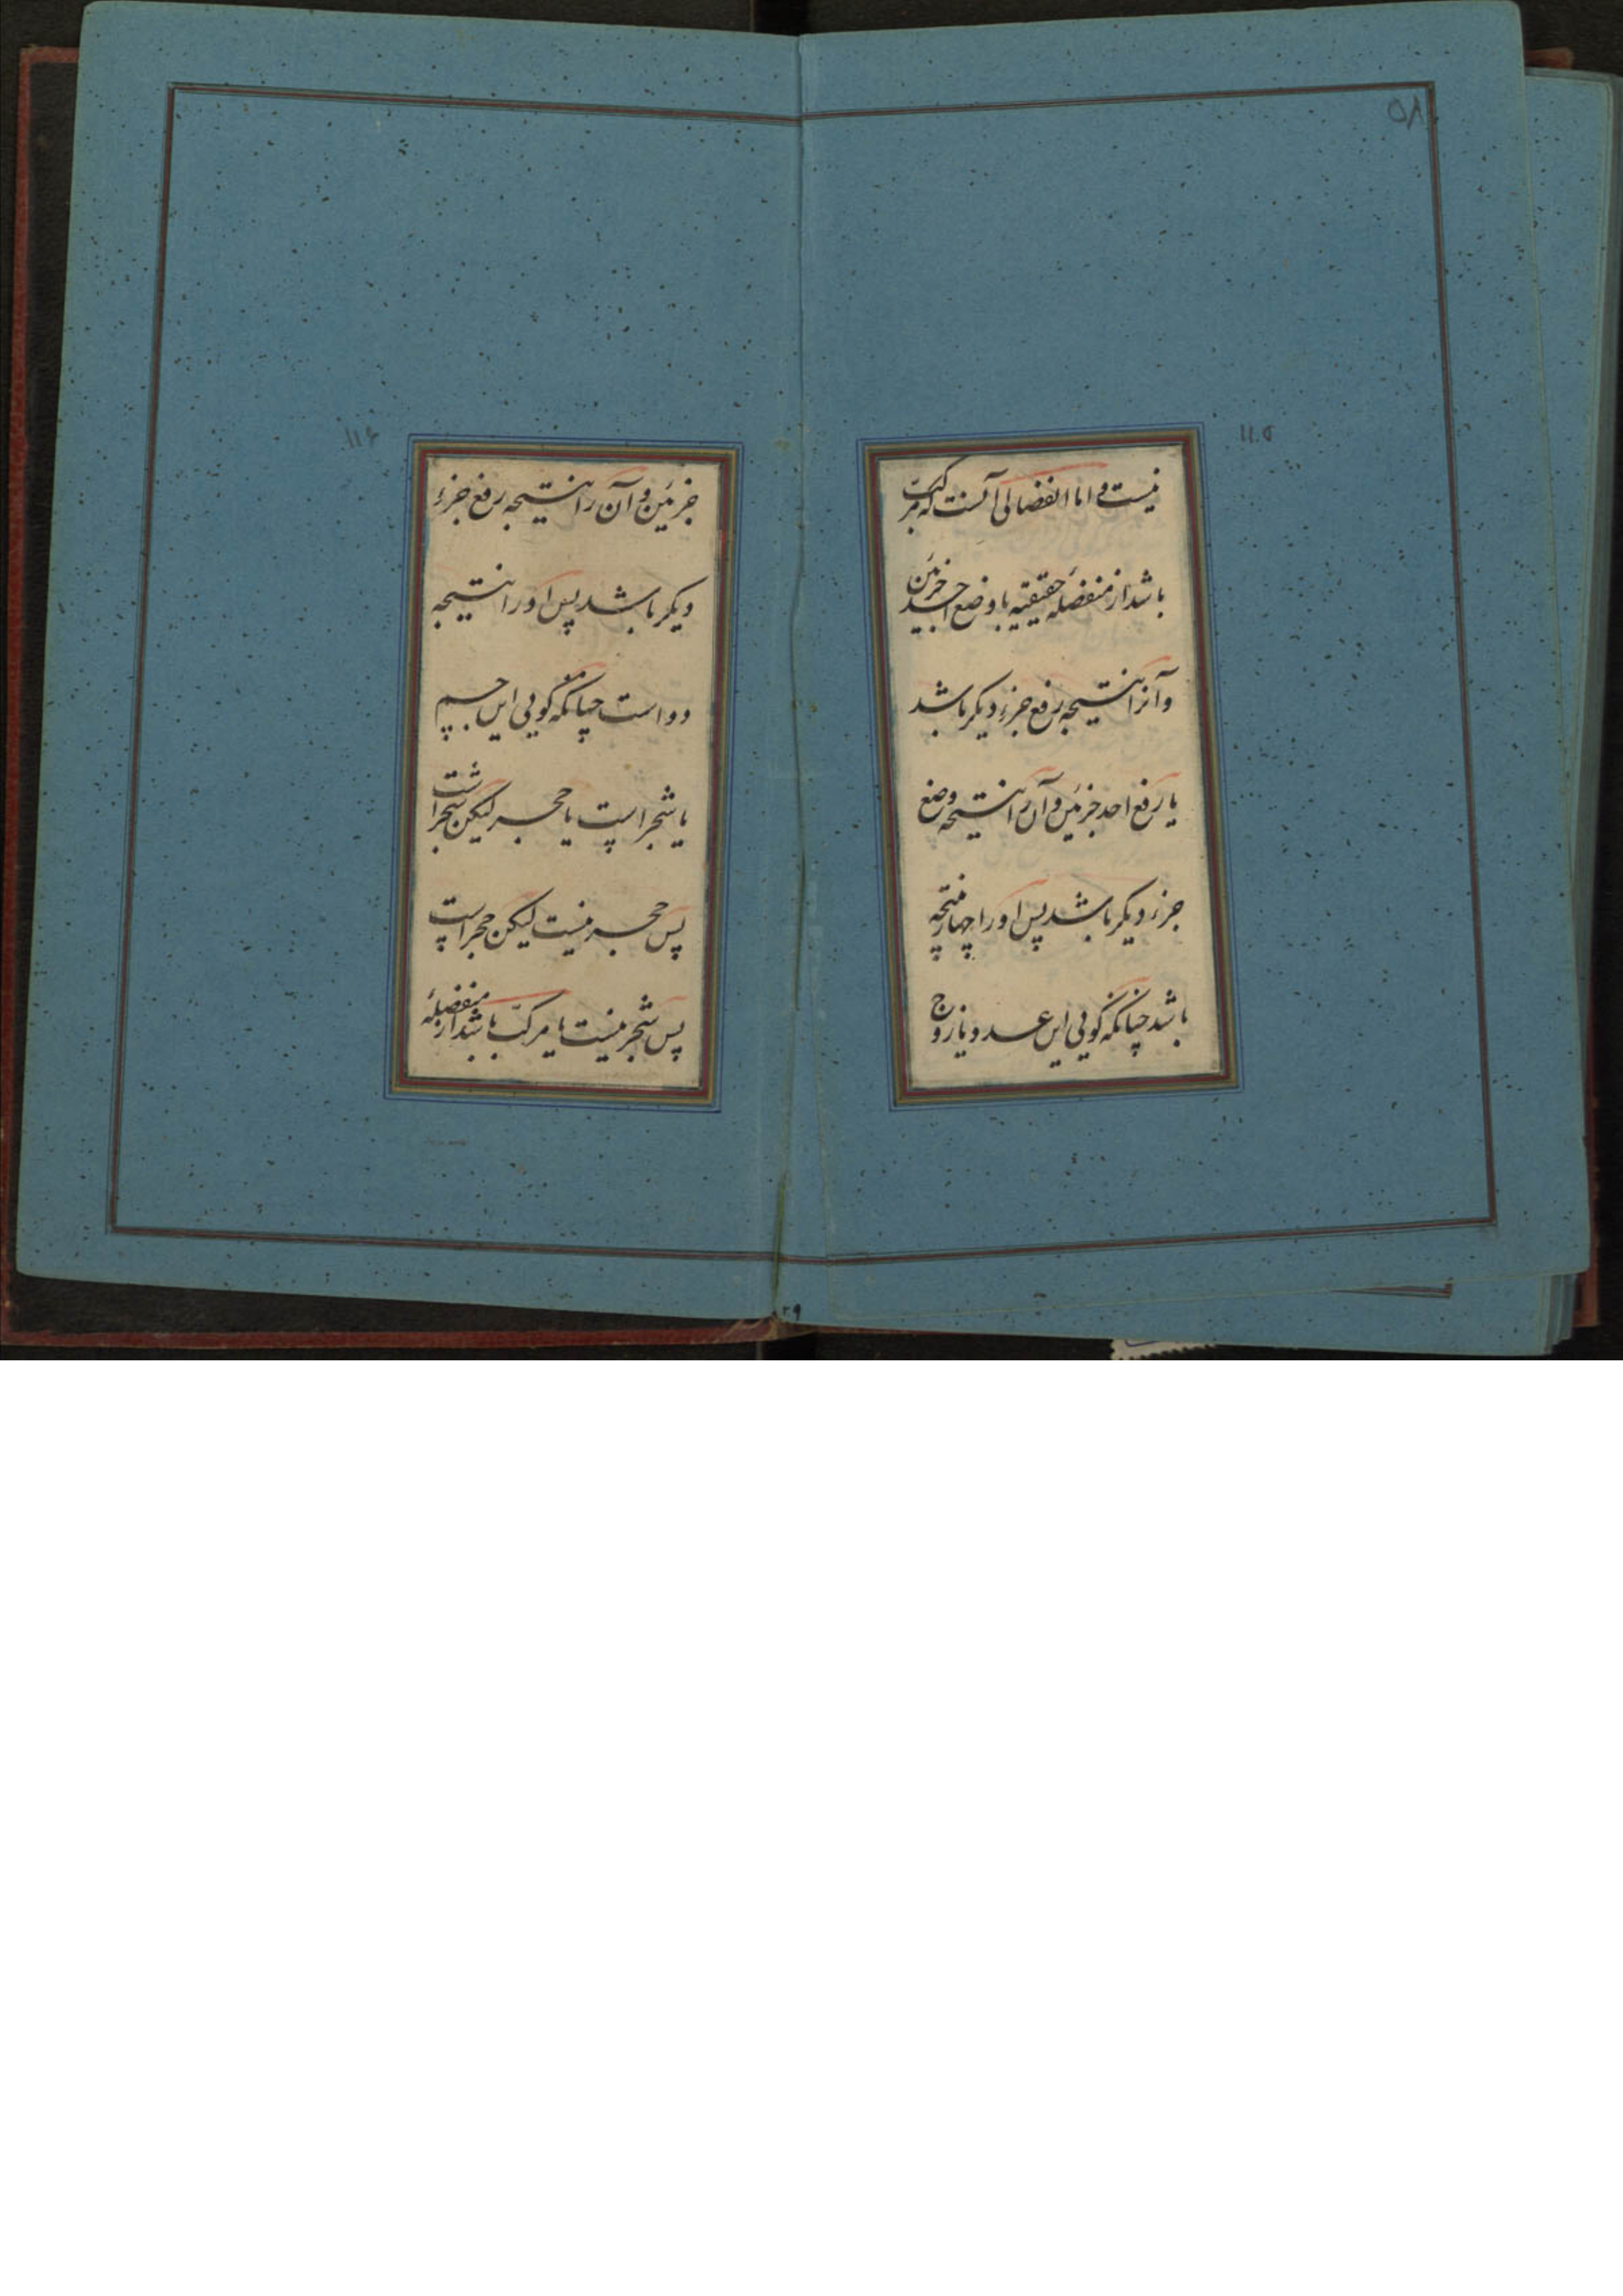 ۵۸
۱۱۵
نیست و اما انفصالی آنست که مرکب
باشد از منفصلهٔ حقیقیه با وضع احد جزئین
و آنرا نتیجه رفع جزء دیگر باشد
یا رفع احد جزئین و آن را نتیجه وضع
جزء دیگر باشد پس او را چهار نتیجه
باشد چنانکه گویی این عدد یا زوج
۱۱۶
جزئین و آن را نتیجه رفع جزء
دیگر باشد پس او را نتیجه
دو است چنانکه گویی این جسم
یا شجر است یا حجر لیکن شجر است
پس حجر نیست لیکن حجر است
پس شجر نیست یا مرکب باشد از منفصلهٔ